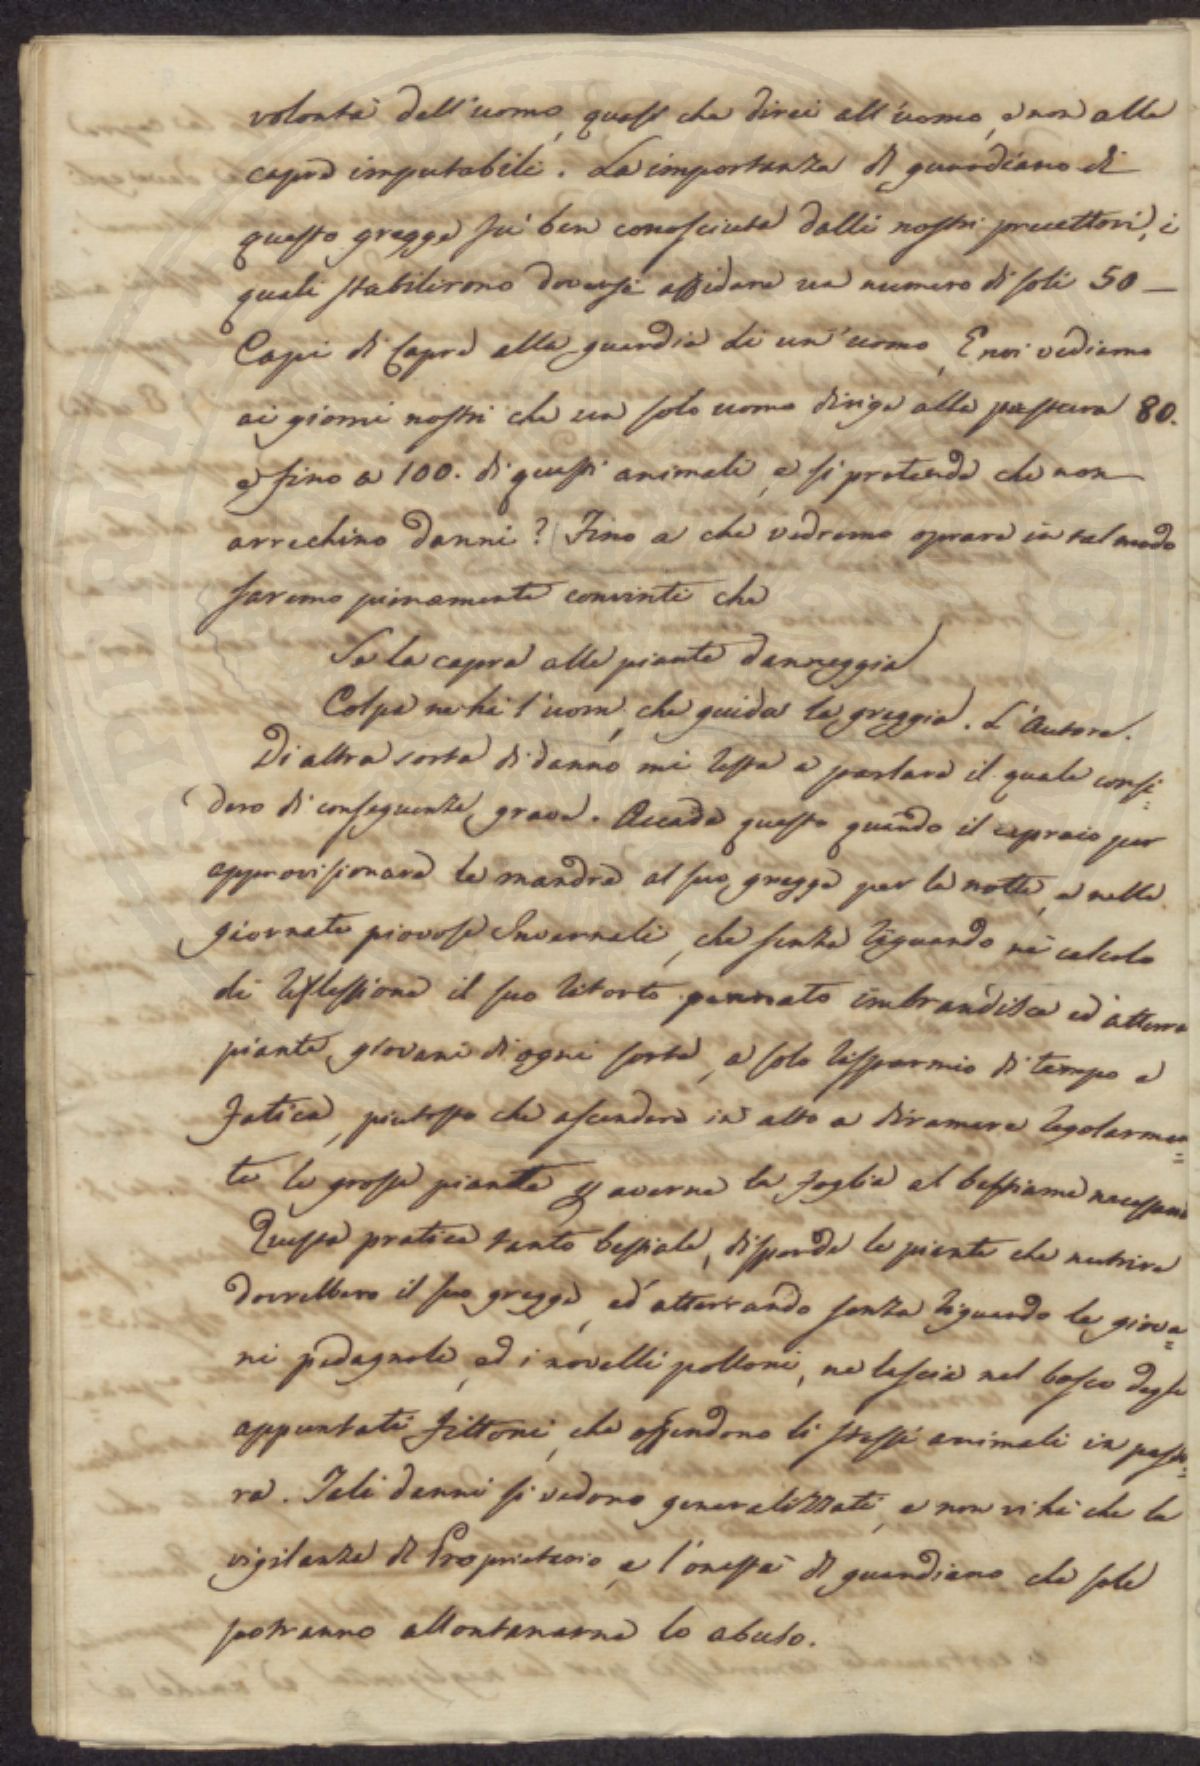 volontà dell'uomo, quasi che direi all'uomo, e non alla
capra imputabili. La importanza di guardiano di
questo gregge fù ben conosciuta dalli nostri precettori, i
quali stabilirono doversi affidare un numero di soli 50 —
Capi di Capre alla guardia di un'uomo, E noi vediamo
ai giorni nostri che un solo uomo dirige alla pastura 80.
e fino a 100. di questi animali, e si pretende che non
arrechino danni? Fino a che vedremo oprare in tal modo
saremo pienamente convinti che
Se la capra alle piante danneggia
Colpa ne hà l'uom, che guida la greggia. L'Autore.
Di altra sorta di danno mi resta a parlare il quale consi=
dero di conseguenza grave. Accade questo quando il capraio per
approvisionare la mandra al suo gregge per la notte, e nelle
giornate piovose Invernali, che senza riguardo nè calcolo
di riflessione il suo ritorto pennato imbrandisce ed atterra
piante giovani di ogni sorta, a solo risparmio di tempo e
fatica, piutosto che ascendere in alto a diramare regolarmen=
te le grosse piante p averne la foglia al bestiame necessaria
Questa pratica tanto bestiale, disperde le piante che nutrire
dovrebbero il suo gregge, ed atterrando senza riguardo le giova=
ni pedagnole, ed i novelli polloni, ne lascia nel bosco degli
appuntati fittoni, che offendono li stessi animali in pastu=
ra. Tali danni si vedono generalizzati, e non vi hà che la
vigilanza di Proprietario, e l'onestà di guardiano che sole
potranno allontanarne lo abuso.